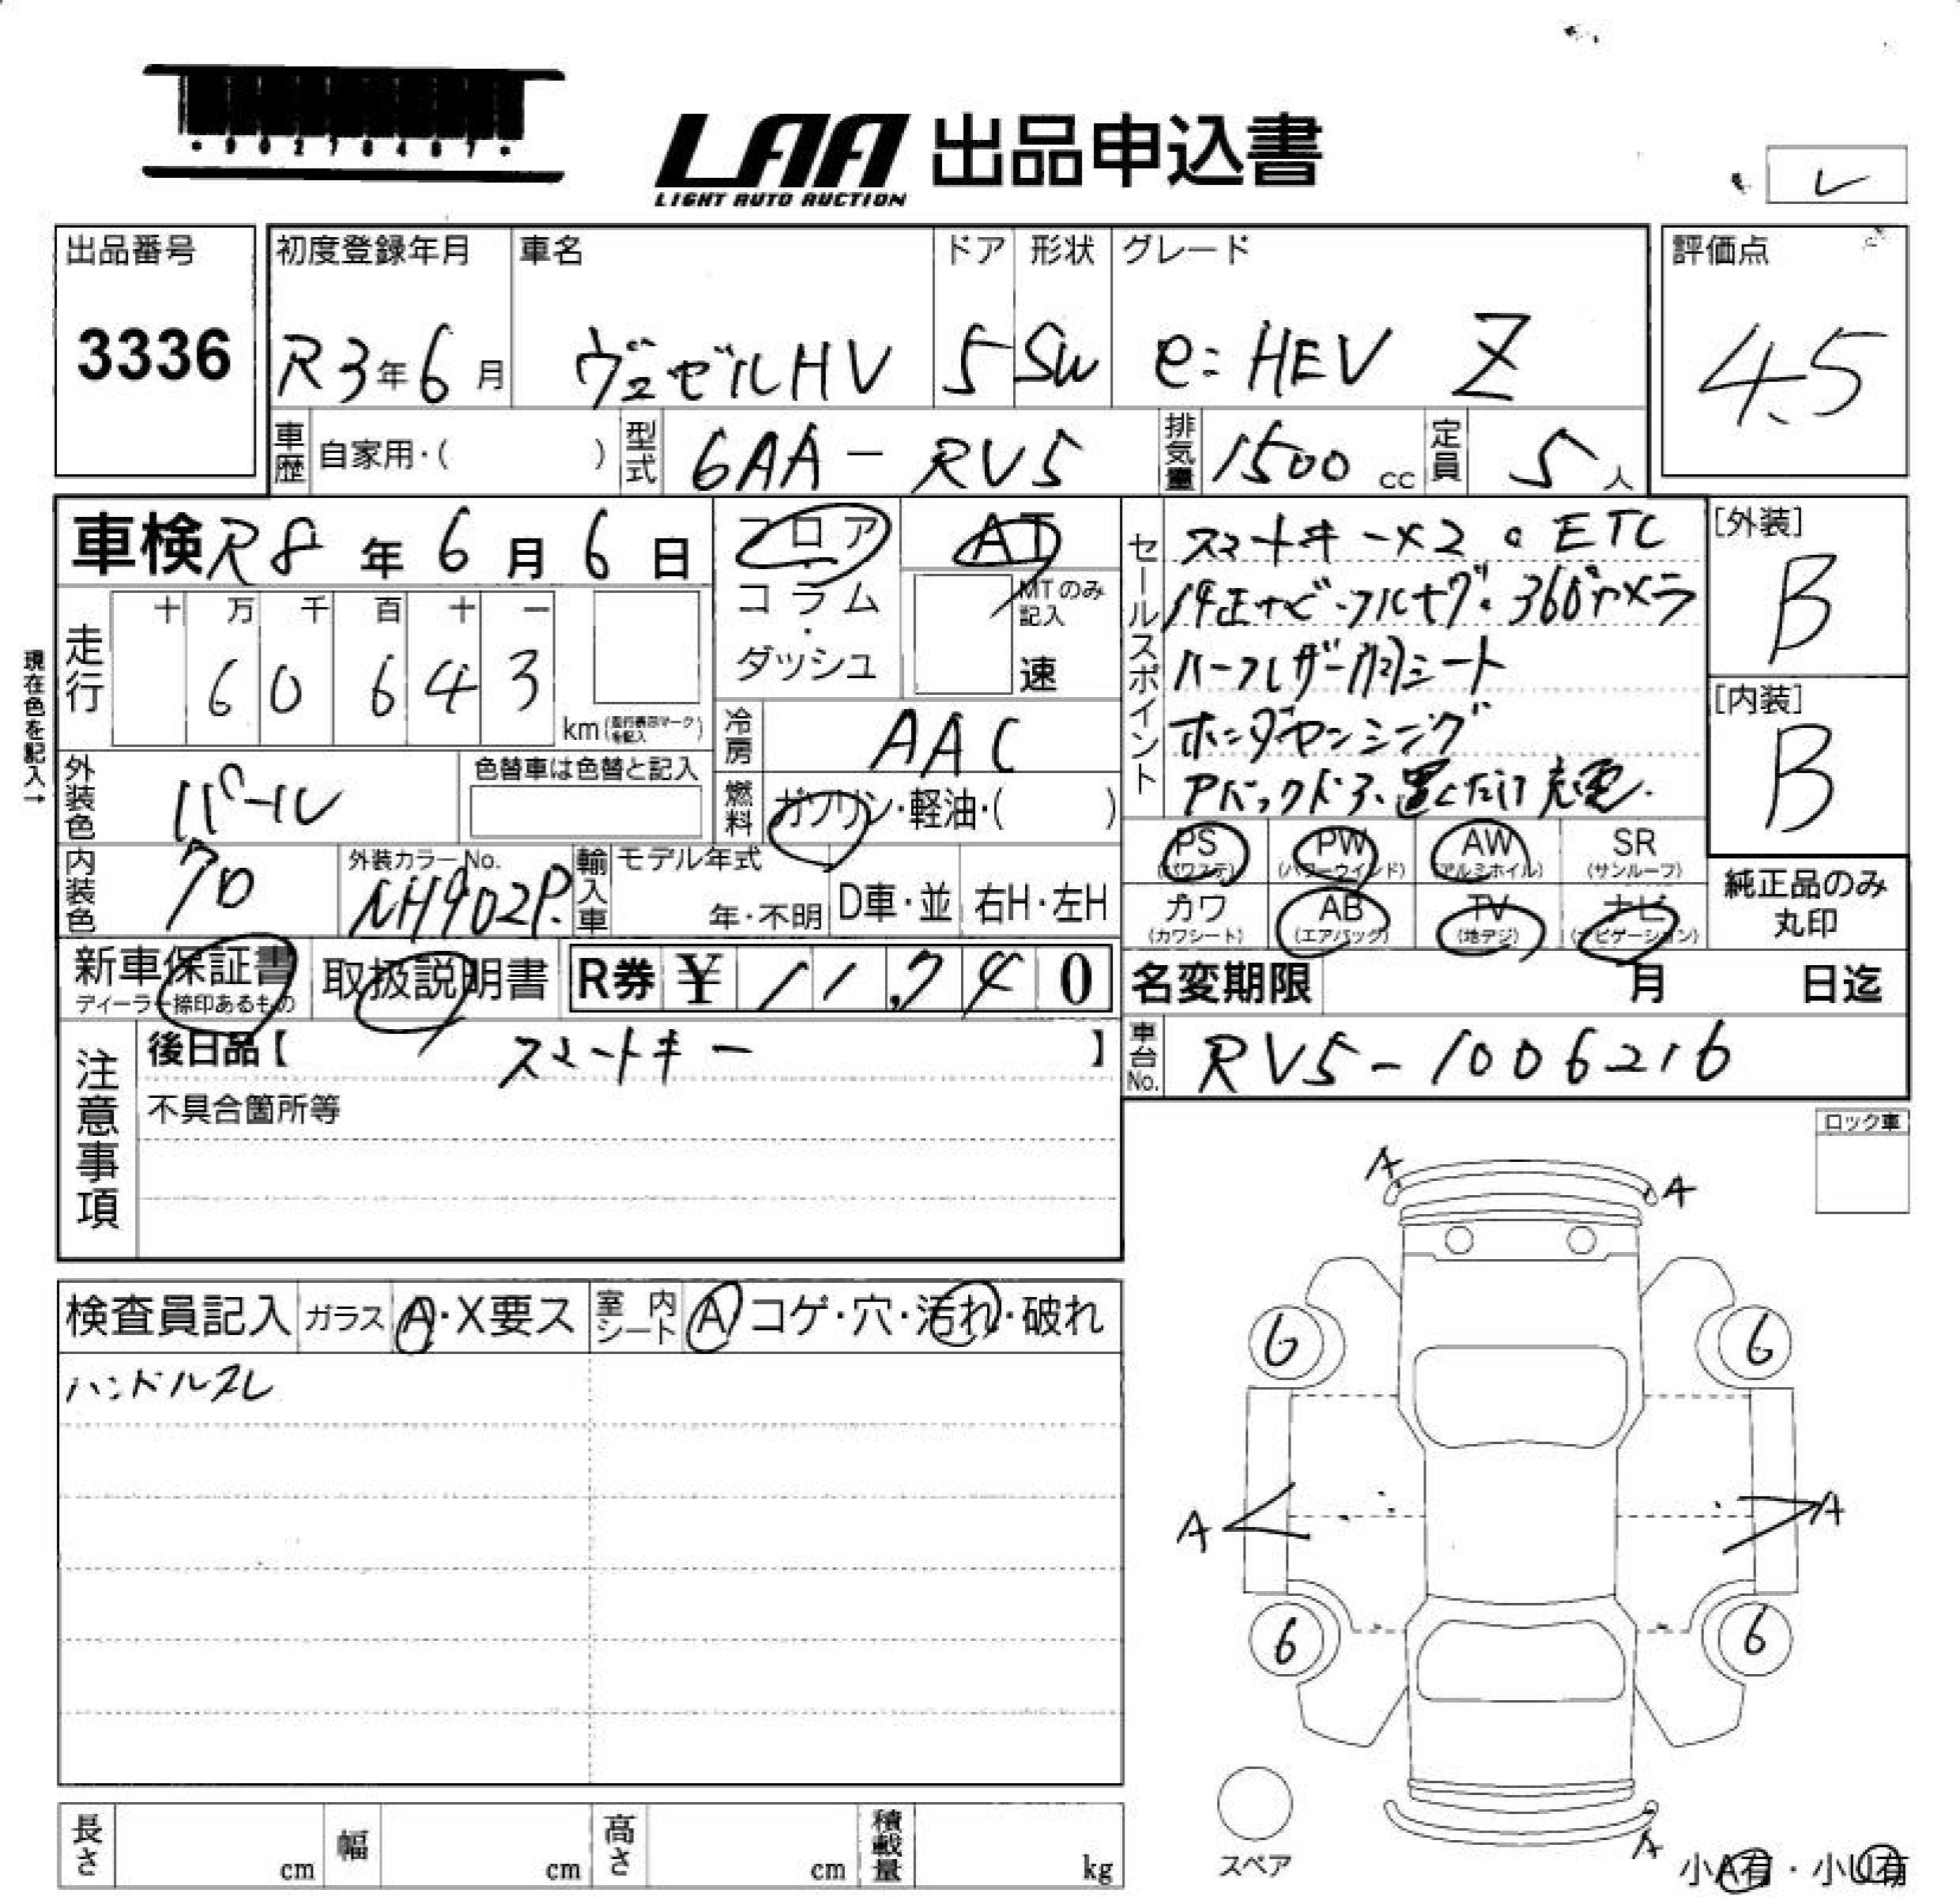 LAA 出品申込書
LIGHT AUTO AUCTION
レ
出品番号
3336
初度登録年月
R3年6月
車名
ヴェゼルHV
ドア
5
形状
SW
グレード
e:HEV Z
評価点
4.5
車歴 自家用・( )
型式 6AA-RV5
排気量 1500cc
定員 5人
車検 R8年6月6日
フロア
コラム
・
ダッシュ
AT
MTのみ記入
速
現在色を記入→
走行
十 万 千 百 十 一
6 0 6 4 3
km(走行表示マークを記入)
冷房 AAC
燃料 ガソリン・軽油・( )
外装色 パール
色替車は色替と記入
内装色
外装カラーNo.
NH902P.
輸入車
モデル年式
年・不明
D車・並
右H・左H
セールスポイント
スマートキー×2。ETC
純正ナビ・フルセグ。360°カメラ
ハーフレザー シート
ホンダセンシング
Pバックドア、置くだけ充電.
[外装]
B
[内装]
B
PS (パワステ)
PW (パワーウインド)
AW (アルミホイル)
SR (サンルーフ)
カワ (カワシート)
AB (エアバック)
TV (地デジ)
ナビ (ナビゲーション)
純正品のみ
丸印
新車保証書
ディーラー捺印あるもの
取扱説明書
R券 ¥ 11,740
名変期限 月 日迄
車台No. RV5-1006216
注意事項
後日品【 スマートキー 】
不具合箇所等
ロック車
検査員記入
ガラス A・X要ス
室内シート A コゲ・穴・汚れ・破れ
ハンドルスレ
A
A
6
6
A
A
6
6
スペア
A
小A有・小U有
長さ cm
幅 cm
高さ cm
積載量 kg